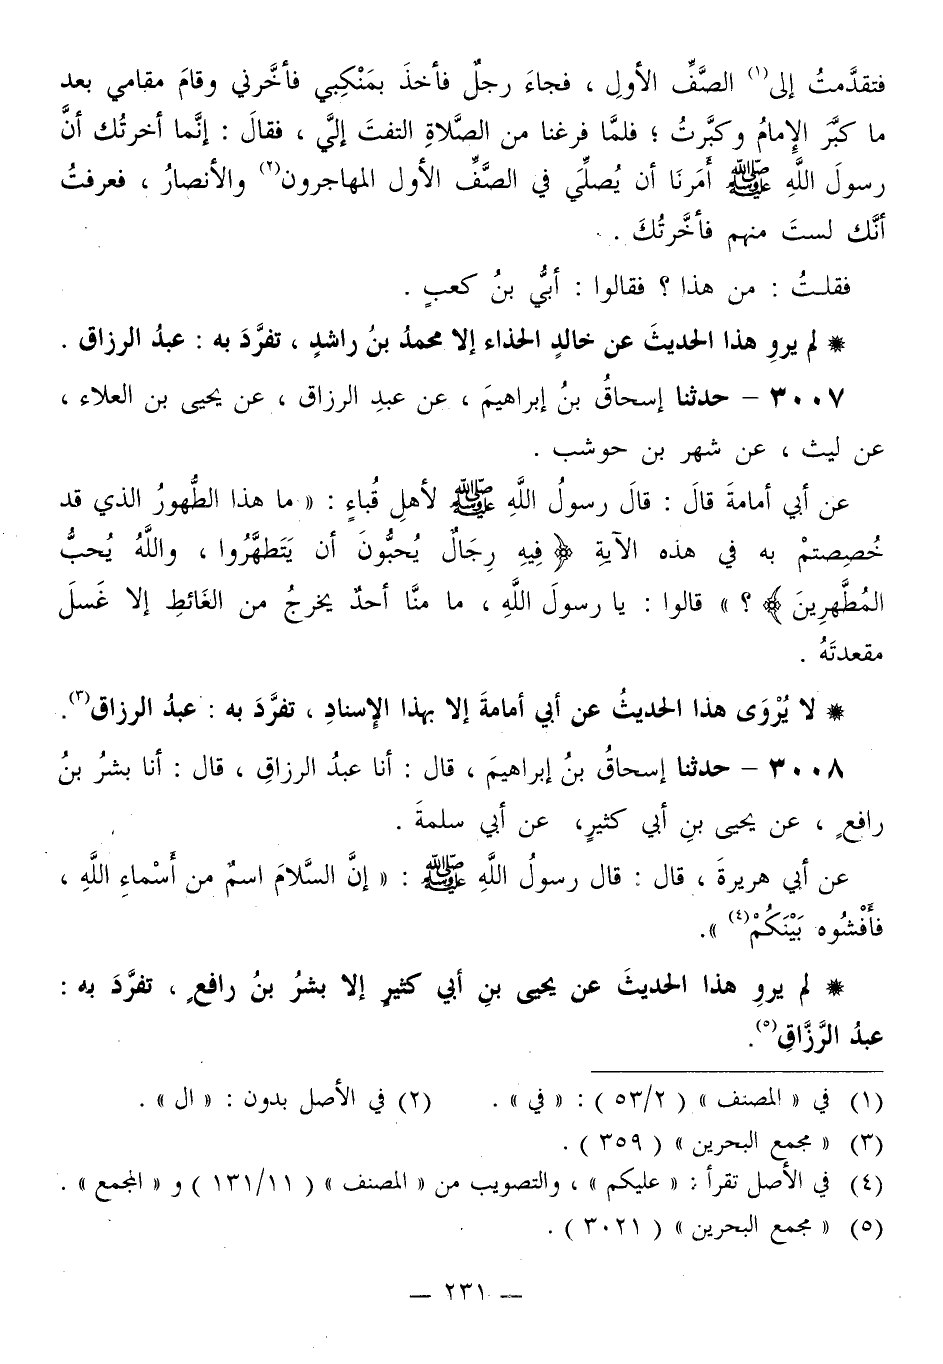 فتقدَّمتُ إلى(١) الصَّفِّ الأولِ ، فجاءَ رجلٌ فأخذَ بمَنْكِبي فأخَّرني وقامَ مقامي بعد
ما كبَّر الإِمامُ وكبَّرتُ ؛ فلمَّا فرغنا من الصَّلاةِ التفتَ إليَّ ، فقالَ : إنَّما أخرتُك أنَّ
رسولَ اللَّهِ ﷺ أَمَرنَا أن يُصلِّيَ في الصَّفِّ الأول المهاجرون(٢) والأنصارُ ، فعرفتُ
أنَّك لستَ منهم فأخَّرتُكَ .
فقلتُ : من هذا ؟ فقالوا : أبيُّ بنُ كعبٍ .
* لم يروِ هذا الحديثَ عن خالدٍ الحذاء إلا محمدُ بنُ راشدٍ ، تفرَّدَ به : عبدُ الرزاق .
٣٠٠٧ – حدثنا إسحاقُ بنُ إبراهيمَ ، عن عبدِ الرزاق ، عن يحيى بن العلاء ،
عن ليث ، عن شهر بن حوشب .
عن أبي أمامةَ قالَ : قالَ رسولُ اللَّهِ ﷺ لأهلِ قُباءٍ : « ما هذا الطُّهورُ الذي قد
خُصِصتمْ به في هذه الآيةِ ﴿ فِيهِ رِجَالٌ يُحبُّونَ أن يَتَطهَّرُوا ، واللَّهُ يُحبُّ
المُطَّهرِينَ ﴾ ؟ » قالوا : يا رسولَ اللَّهِ ، ما منَّا أحدٌ يخرجُ من الغَائطِ إلا غَسلَ
مقعدتَهُ .
* لا يُرْوَى هذا الحديثُ عن أبي أمامةَ إلا بهذا الإِسنادِ ، تفرَّدَ به : عبدُ الرزاق(٣).
٣٠٠٨ – حدثنا إسحاقُ بنُ إبراهيمَ ، قال : أنا عبدُ الرزاقِ ، قال : أنا بشرُ بنُ
رافعٍ ، عن يحيى بنِ أبي كثيرٍ، عن أبي سلمةَ .
عن أبي هريرةَ ، قال : قال رسولُ اللَّهِ ﷺ : « إنَّ السَّلامَ اسمٌ من أَسْماءِ اللَّهِ ،
فأَفْشُوه بَيْنَكُمْ(٤) ».
* لم يروِ هذا الحديثَ عن يحيى بنِ أبي كثيرٍ إلا بشرُ بنُ رافعٍ ، تفرَّدَ به :
عبدُ الرَّزَّاقِ(٥).
(١) في « المصنف » ( ٥٣/٢ ) : « في » . (٢) في الأصل بدون : « ال » .
(٣) « مجمع البحرين » ( ٣٥٩ ) .
(٤) في الأصل تقرأ : « عليكم » ، والتصويب من « المصنف » ( ١٣١/١١ ) و « المجمع » .
(٥) « مجمع البحرين » ( ٣٠٢١ ) .
— ٢٣١ —